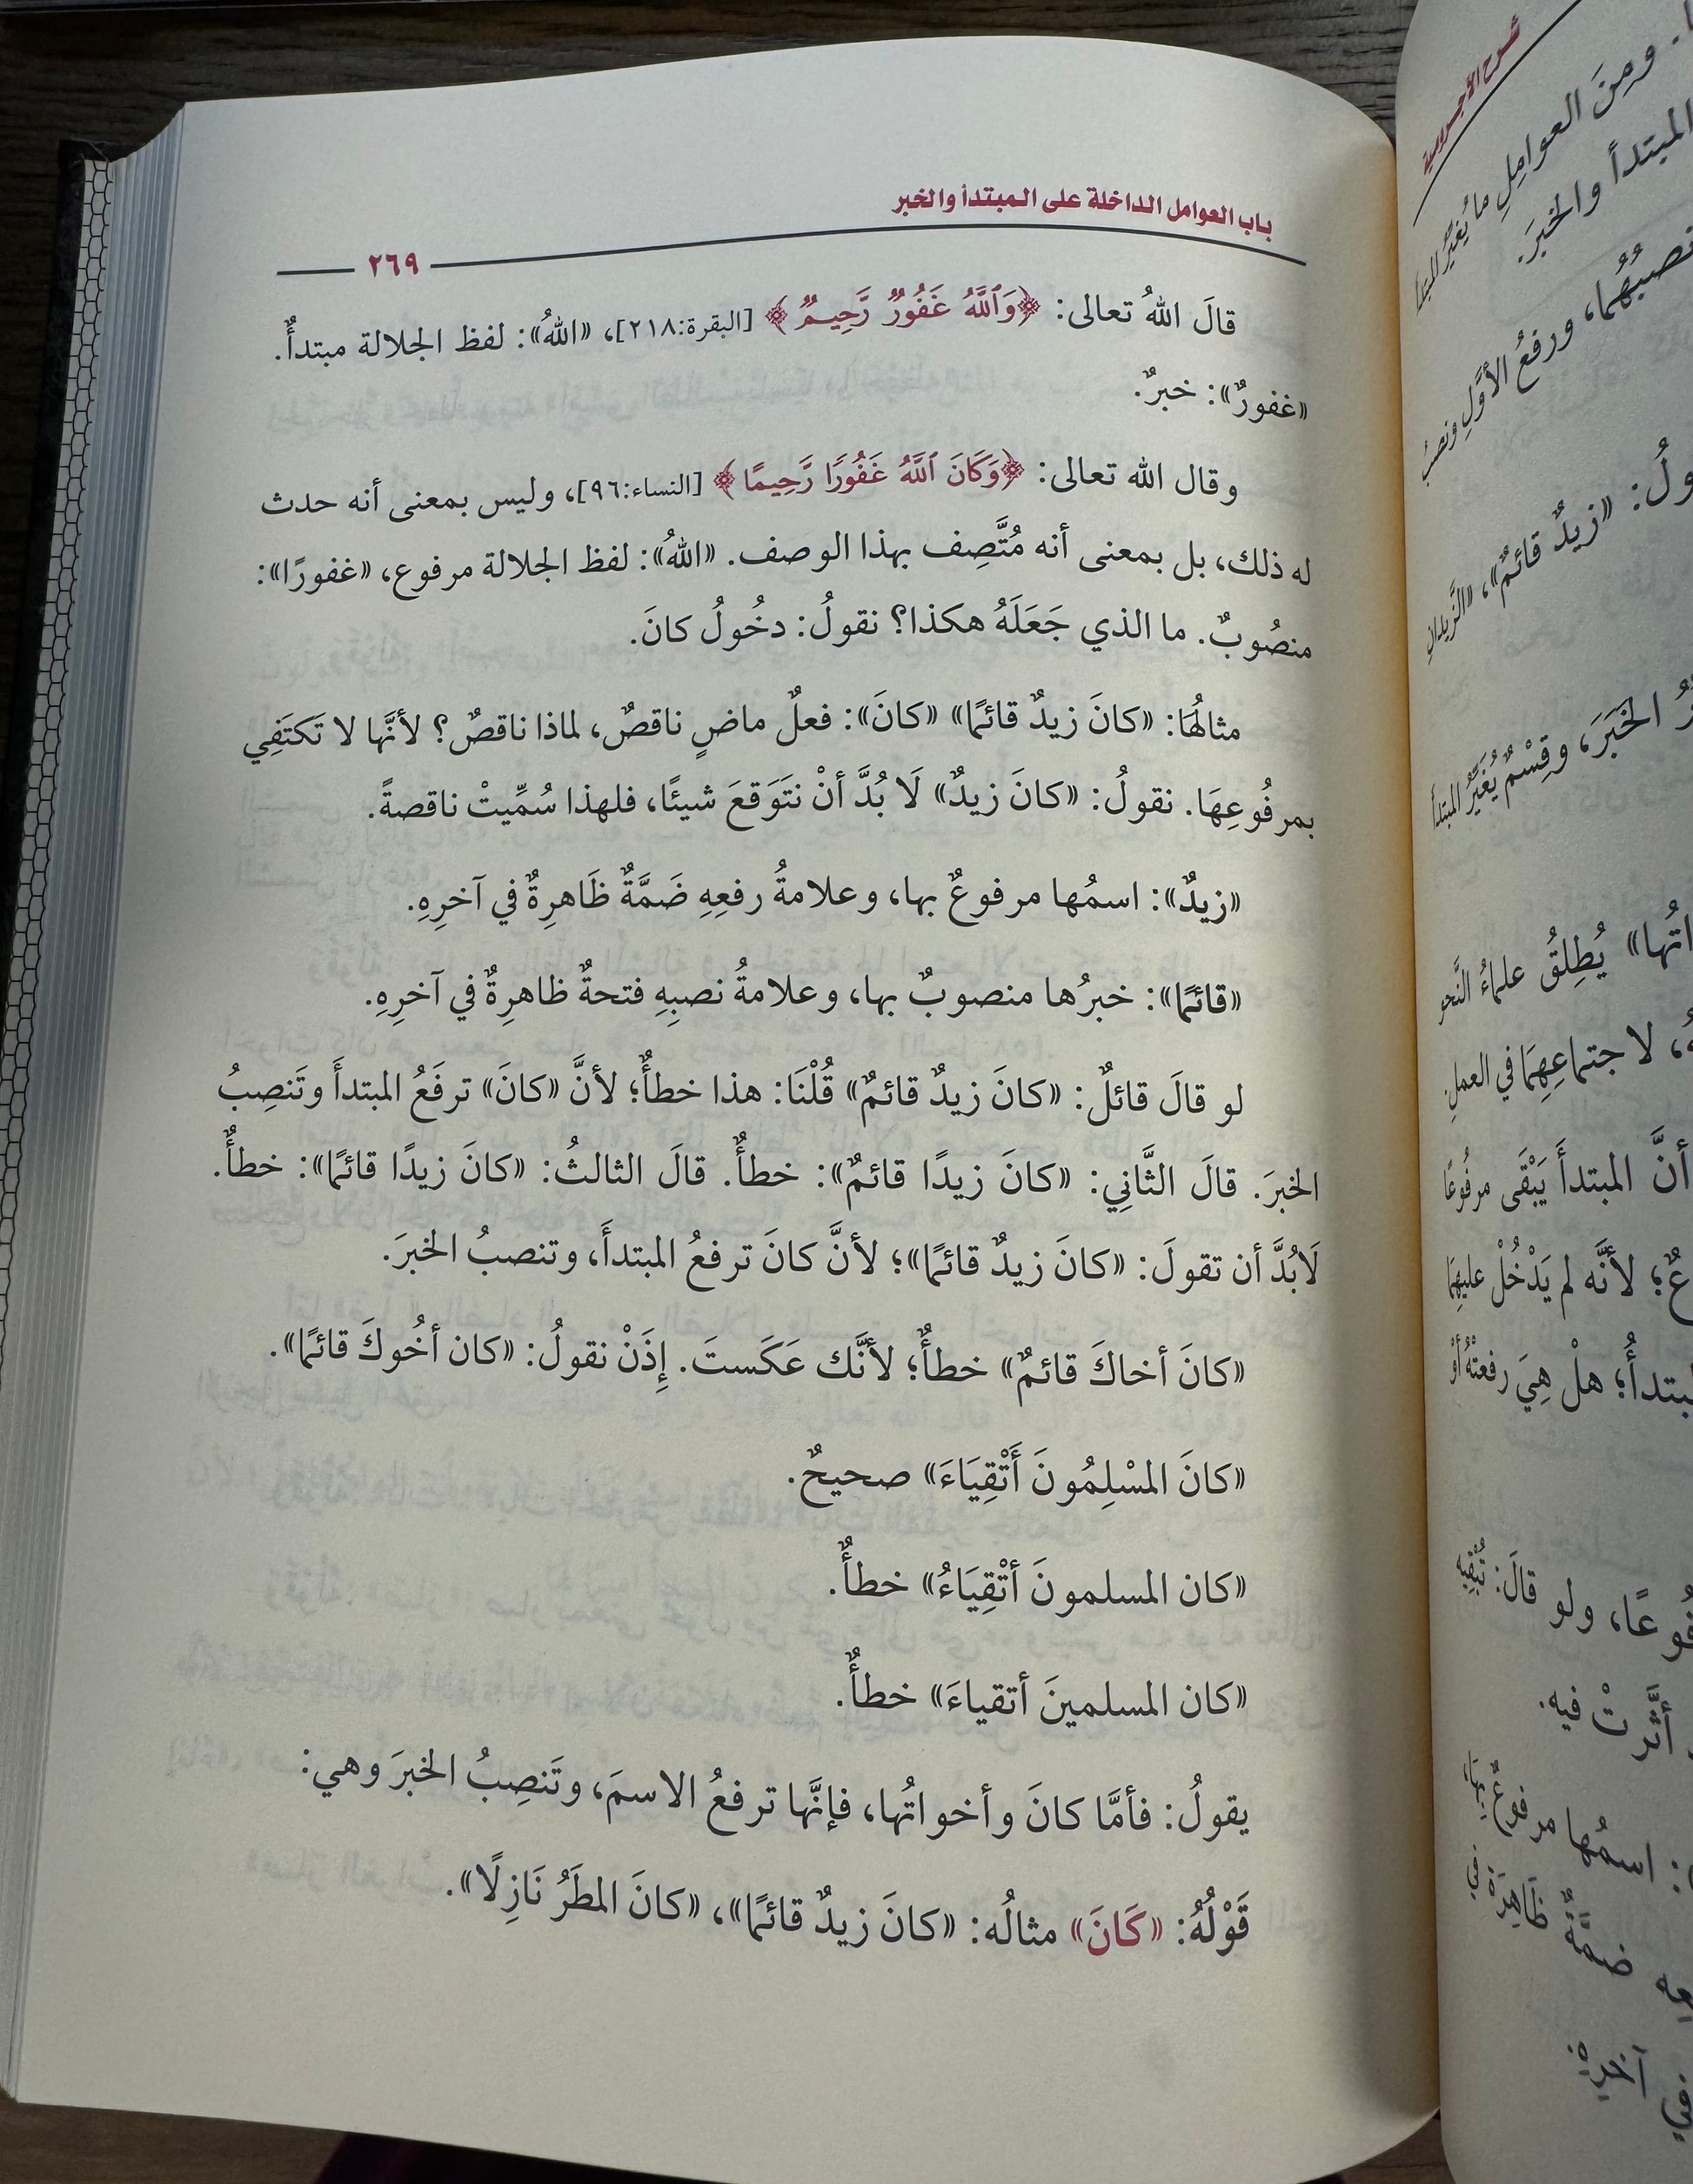 باب العوامل الداخلة على المبتدأ والخبر
٢٦٩
قالَ اللهُ تعالى: ﴿وَٱللَّهُ غَفُورٌ رَّحِيمٌ﴾ [البقرة:٢١٨]، «اللهُ»: لفظ الجلالة مبتدأٌ.
«غفورٌ»: خبرٌ.
وقال الله تعالى: ﴿وَكَانَ ٱللَّهُ غَفُورًا رَّحِيمًا﴾ [النساء:٩٦]، وليس بمعنى أنه حدث
له ذلك، بل بمعنى أنه مُتَّصِف بهذا الوصف. «اللهُ»: لفظ الجلالة مرفوع، «غفورًا»:
منصُوبٌ. ما الذي جَعَلَهُ هكذا؟ نقولُ: دخُولُ كانَ.
مثالُهَا: «كانَ زيدٌ قائمًا» «كانَ»: فعلٌ ماضٍ ناقصٌ، لماذا ناقصٌ؟ لأنَّها لا تَكتَفِي
بمرفُوعِهَا. نقولُ: «كانَ زيدٌ» لَا بُدَّ أنْ نتَوَقعَ شيئًا، فلهذا سُمِّيتْ ناقصةً.
«زيدٌ»: اسمُها مرفوعٌ بها، وعلامةُ رفعِهِ ضَمَّةٌ ظَاهرِةٌ في آخرِهِ.
«قائمًا»: خبرُها منصوبٌ بها، وعلامةُ نصبِهِ فتحةٌ ظاهرِةٌ في آخرِهِ.
لو قالَ قائلٌ: «كانَ زيدٌ قائمٌ» قُلْنَا: هذا خطأٌ؛ لأنَّ «كانَ» ترفَعُ المبتدأَ وتَنصِبُ
الخبرَ. قالَ الثَّانِي: «كانَ زيدًا قائمٌ»: خطأٌ. قالَ الثالثُ: «كانَ زيدًا قائمًا»: خطأٌ.
لَابُدَّ أن تقولَ: «كانَ زيدٌ قائمًا»؛ لأنَّ كانَ ترفعُ المبتدأَ، وتنصبُ الخبرَ.
«كانَ أخاكَ قائمٌ» خطأٌ؛ لأنَّك عَكَستَ. إِذَنْ نقولُ: «كان أخُوكَ قائمًا».
«كانَ المسْلِمُونَ أَتْقِيَاءَ» صحيحٌ.
«كان المسلمونَ أتْقِيَاءُ» خطأٌ.
«كان المسلمينَ أتقياءَ» خطأٌ.
يقولُ: فأمَّا كانَ وأخواتُها، فإنَّها ترفعُ الاسمَ، وتَنصِبُ الخبرَ وهي:
قَوْلُهُ: «كَانَ» مثالُه: «كانَ زيدٌ قائمًا»، «كانَ المطَرُ نَازِلًا».
شرح الآجرومية
ومِنَ العوامِلِ ما يُغيِّرُ المبتدأ
المبتدأ والخبرَ.
نصبُهُما، ورفعُ الأوَّلِ ونصبُ
«زيدٌ قائمٌ»، «الزَّيدانِ
الخَبَرَ، وقِسْمٌ يُغَيِّرُ المبتدأ
يُطلِقُ علماءُ النَّحو
لاجتماعِهِمَا في العملِ.
أنَّ المبتدأَ يَبْقَى مرفُوعًا
لأنَّه لم يَدْخُلْ عليهِمَا
هلْ هِيَ رفعتْهُ أوْ
ولو قالَ: تُبْقِيه
أثَّرتْ فيه.
اسمُها مرفوعٌ بِهَا،
ضمَّةٌ ظَاهِرَةٌ في
في آخرِهِ.